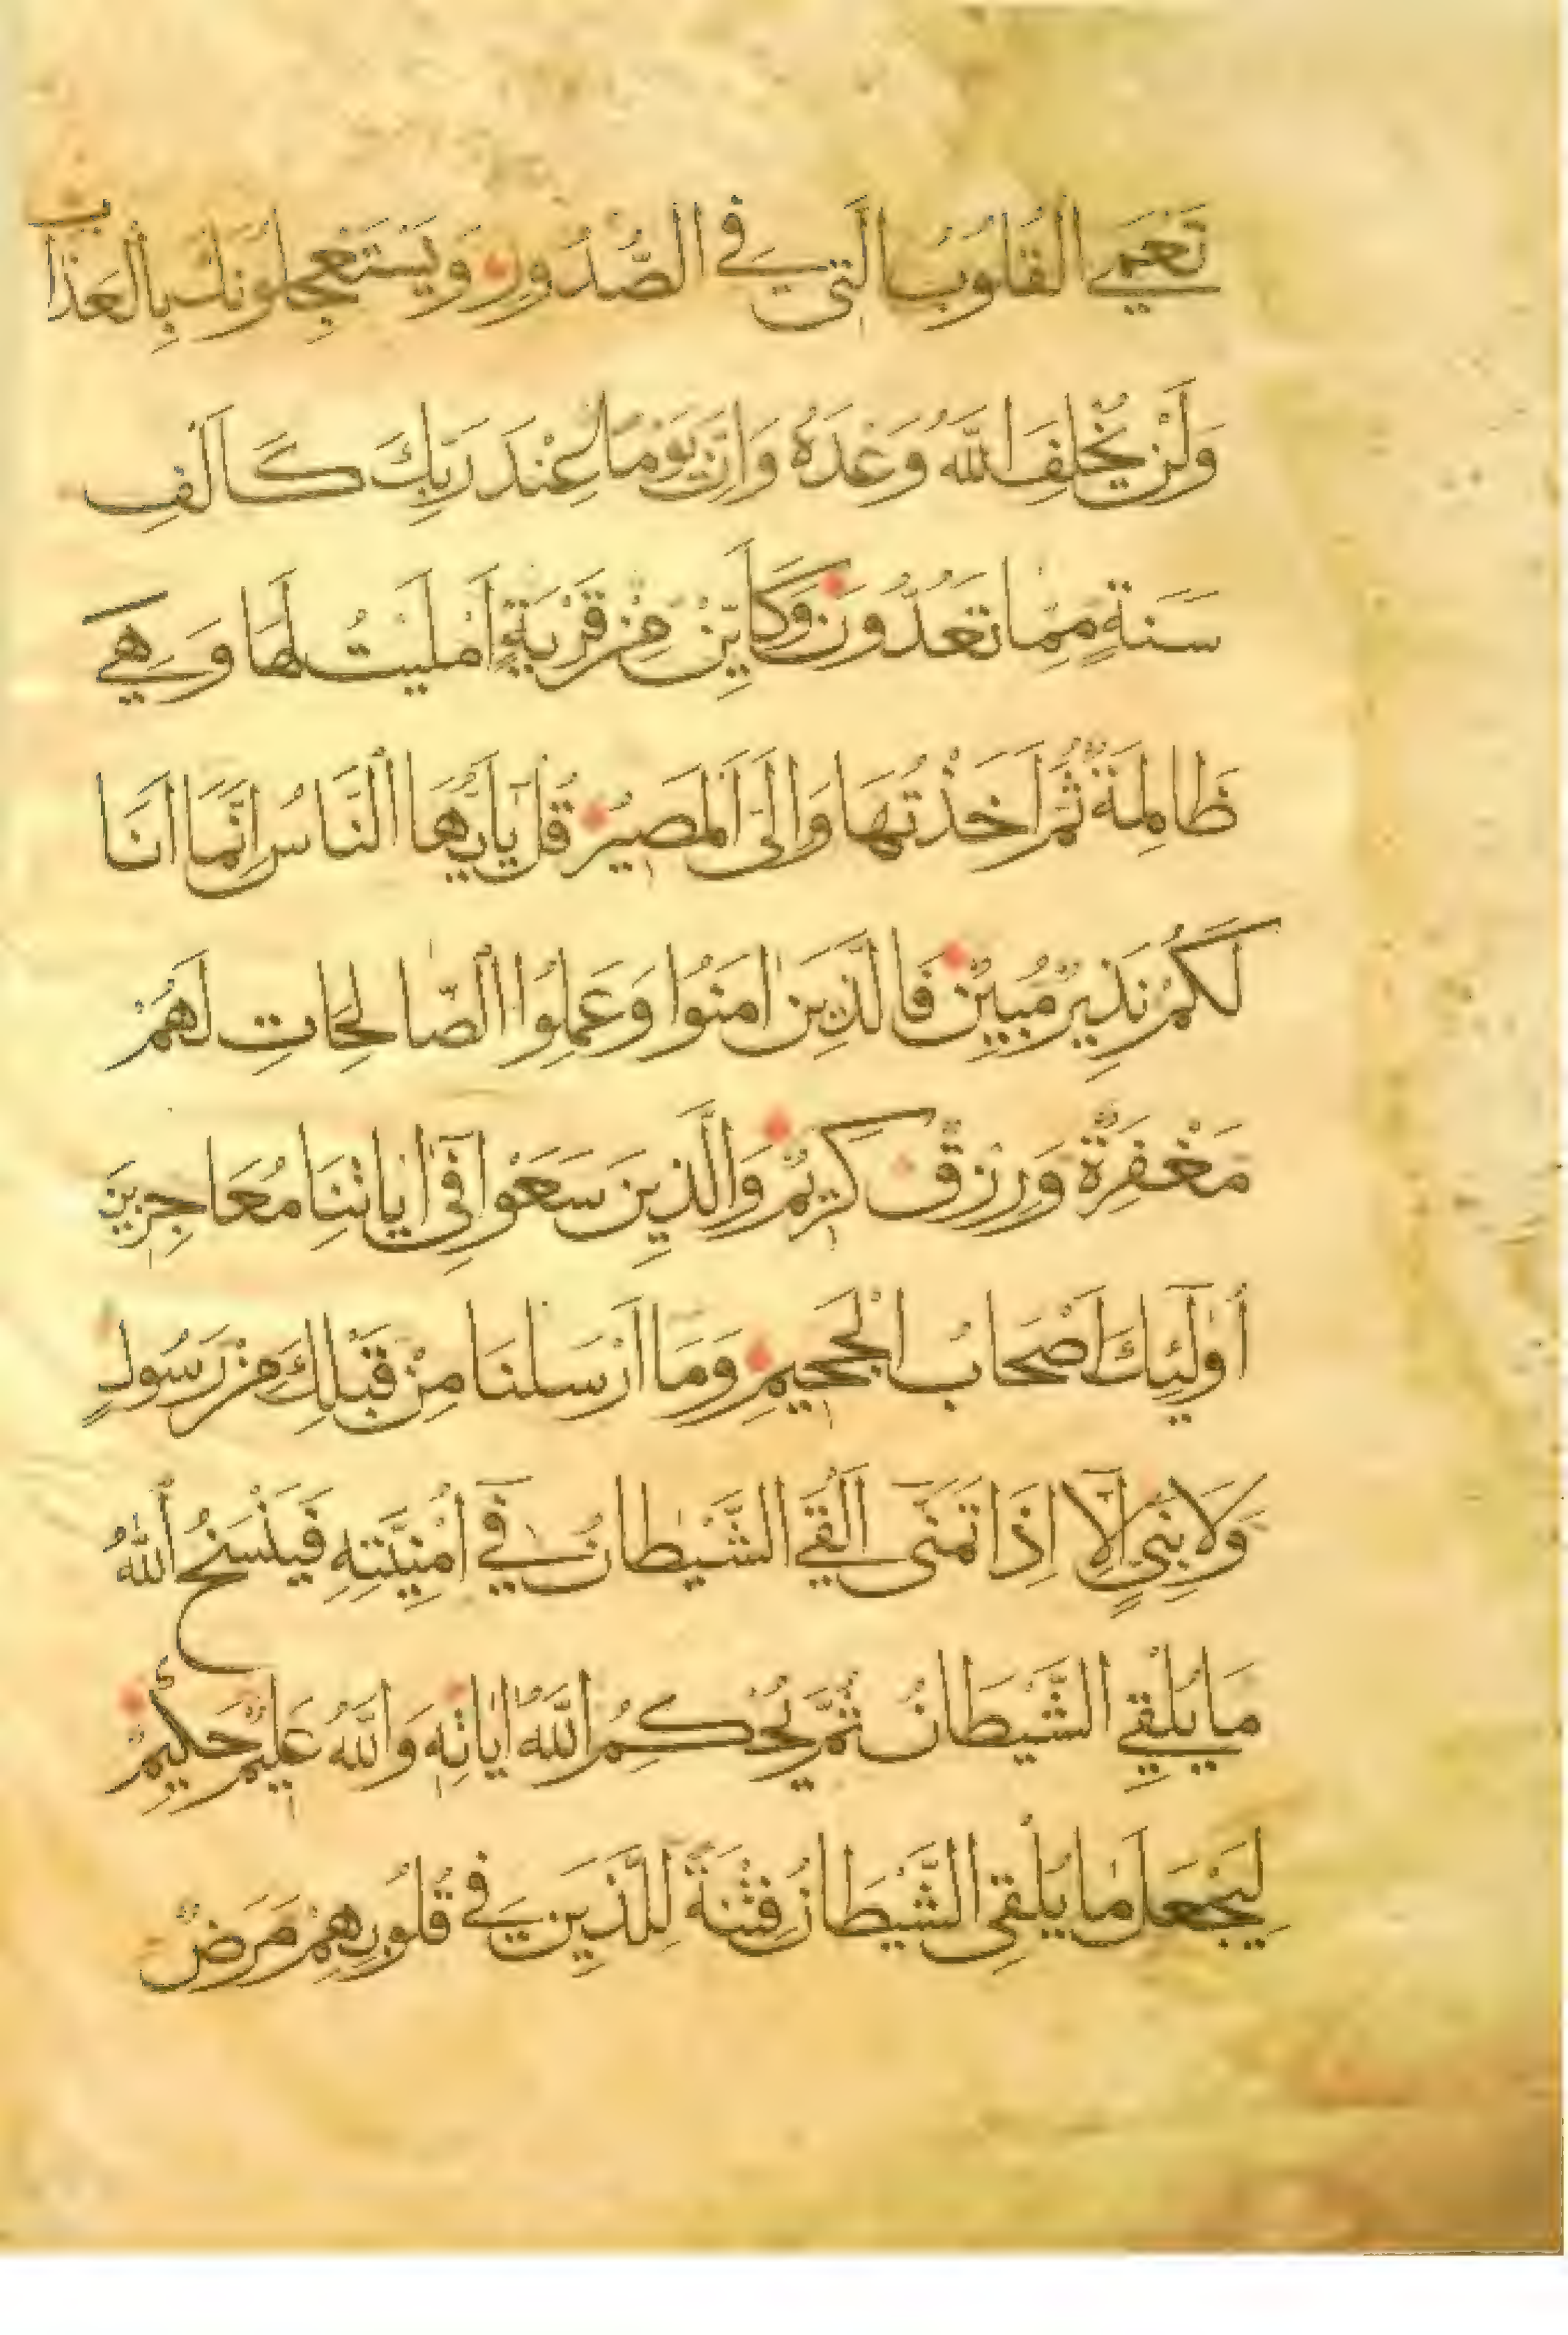 تَعْمَى الْقُلُوبُ الَّتِي فِي الصُّدُورِ وَيَسْتَعْجِلُونَكَ بِالْعَذَابِ
وَلَنْ يُخْلِفَ اللَّهُ وَعْدَهُ وَاِنَّ يَوْمًا عِنْدَ رَبِّكَ كَاَلْفِ
سَنَةٍ مِمَّا تَعُدُّونَ وَكَاَيِّنْ مِنْ قَرْيَةٍ اَمْلَيْتُ لَهَا وَهِيَ
ظَالِمَةٌ ثُمَّ اَخَذْتُهَا وَاِلَيَّ الْمَصِيرُ قُلْ يَا اَيُّهَا النَّاسُ اِنَّمَا اَنَا
لَكُمْ نَذِيرٌ مُبِينٌ فَالَّذِينَ اٰمَنُوا وَعَمِلُوا الصَّالِحَاتِ لَهُمْ
مَغْفِرَةٌ وَرِزْقٌ كَرِيمٌ وَالَّذِينَ سَعَوْا فِي اٰيَاتِنَا مُعَاجِزِينَ
اُولٰئِكَ اَصْحَابُ الْجَحِيمِ وَمَا اَرْسَلْنَا مِنْ قَبْلِكَ مِنْ رَسُولٍ
وَلَا نَبِيٍّ اِلَّا اِذَا تَمَنَّى اَلْقَى الشَّيْطَانُ فِي اُمْنِيَّتِهِ فَيَنْسَخُ اللَّهُ
مَا يُلْقِي الشَّيْطَانُ ثُمَّ يُحْكِمُ اللَّهُ اٰيَاتِهِ وَاللَّهُ عَلِيمٌ حَكِيمٌ
لِيَجْعَلَ مَا يُلْقِي الشَّيْطَانُ فِتْنَةً لِلَّذِينَ فِي قُلُوبِهِمْ مَرَضٌ